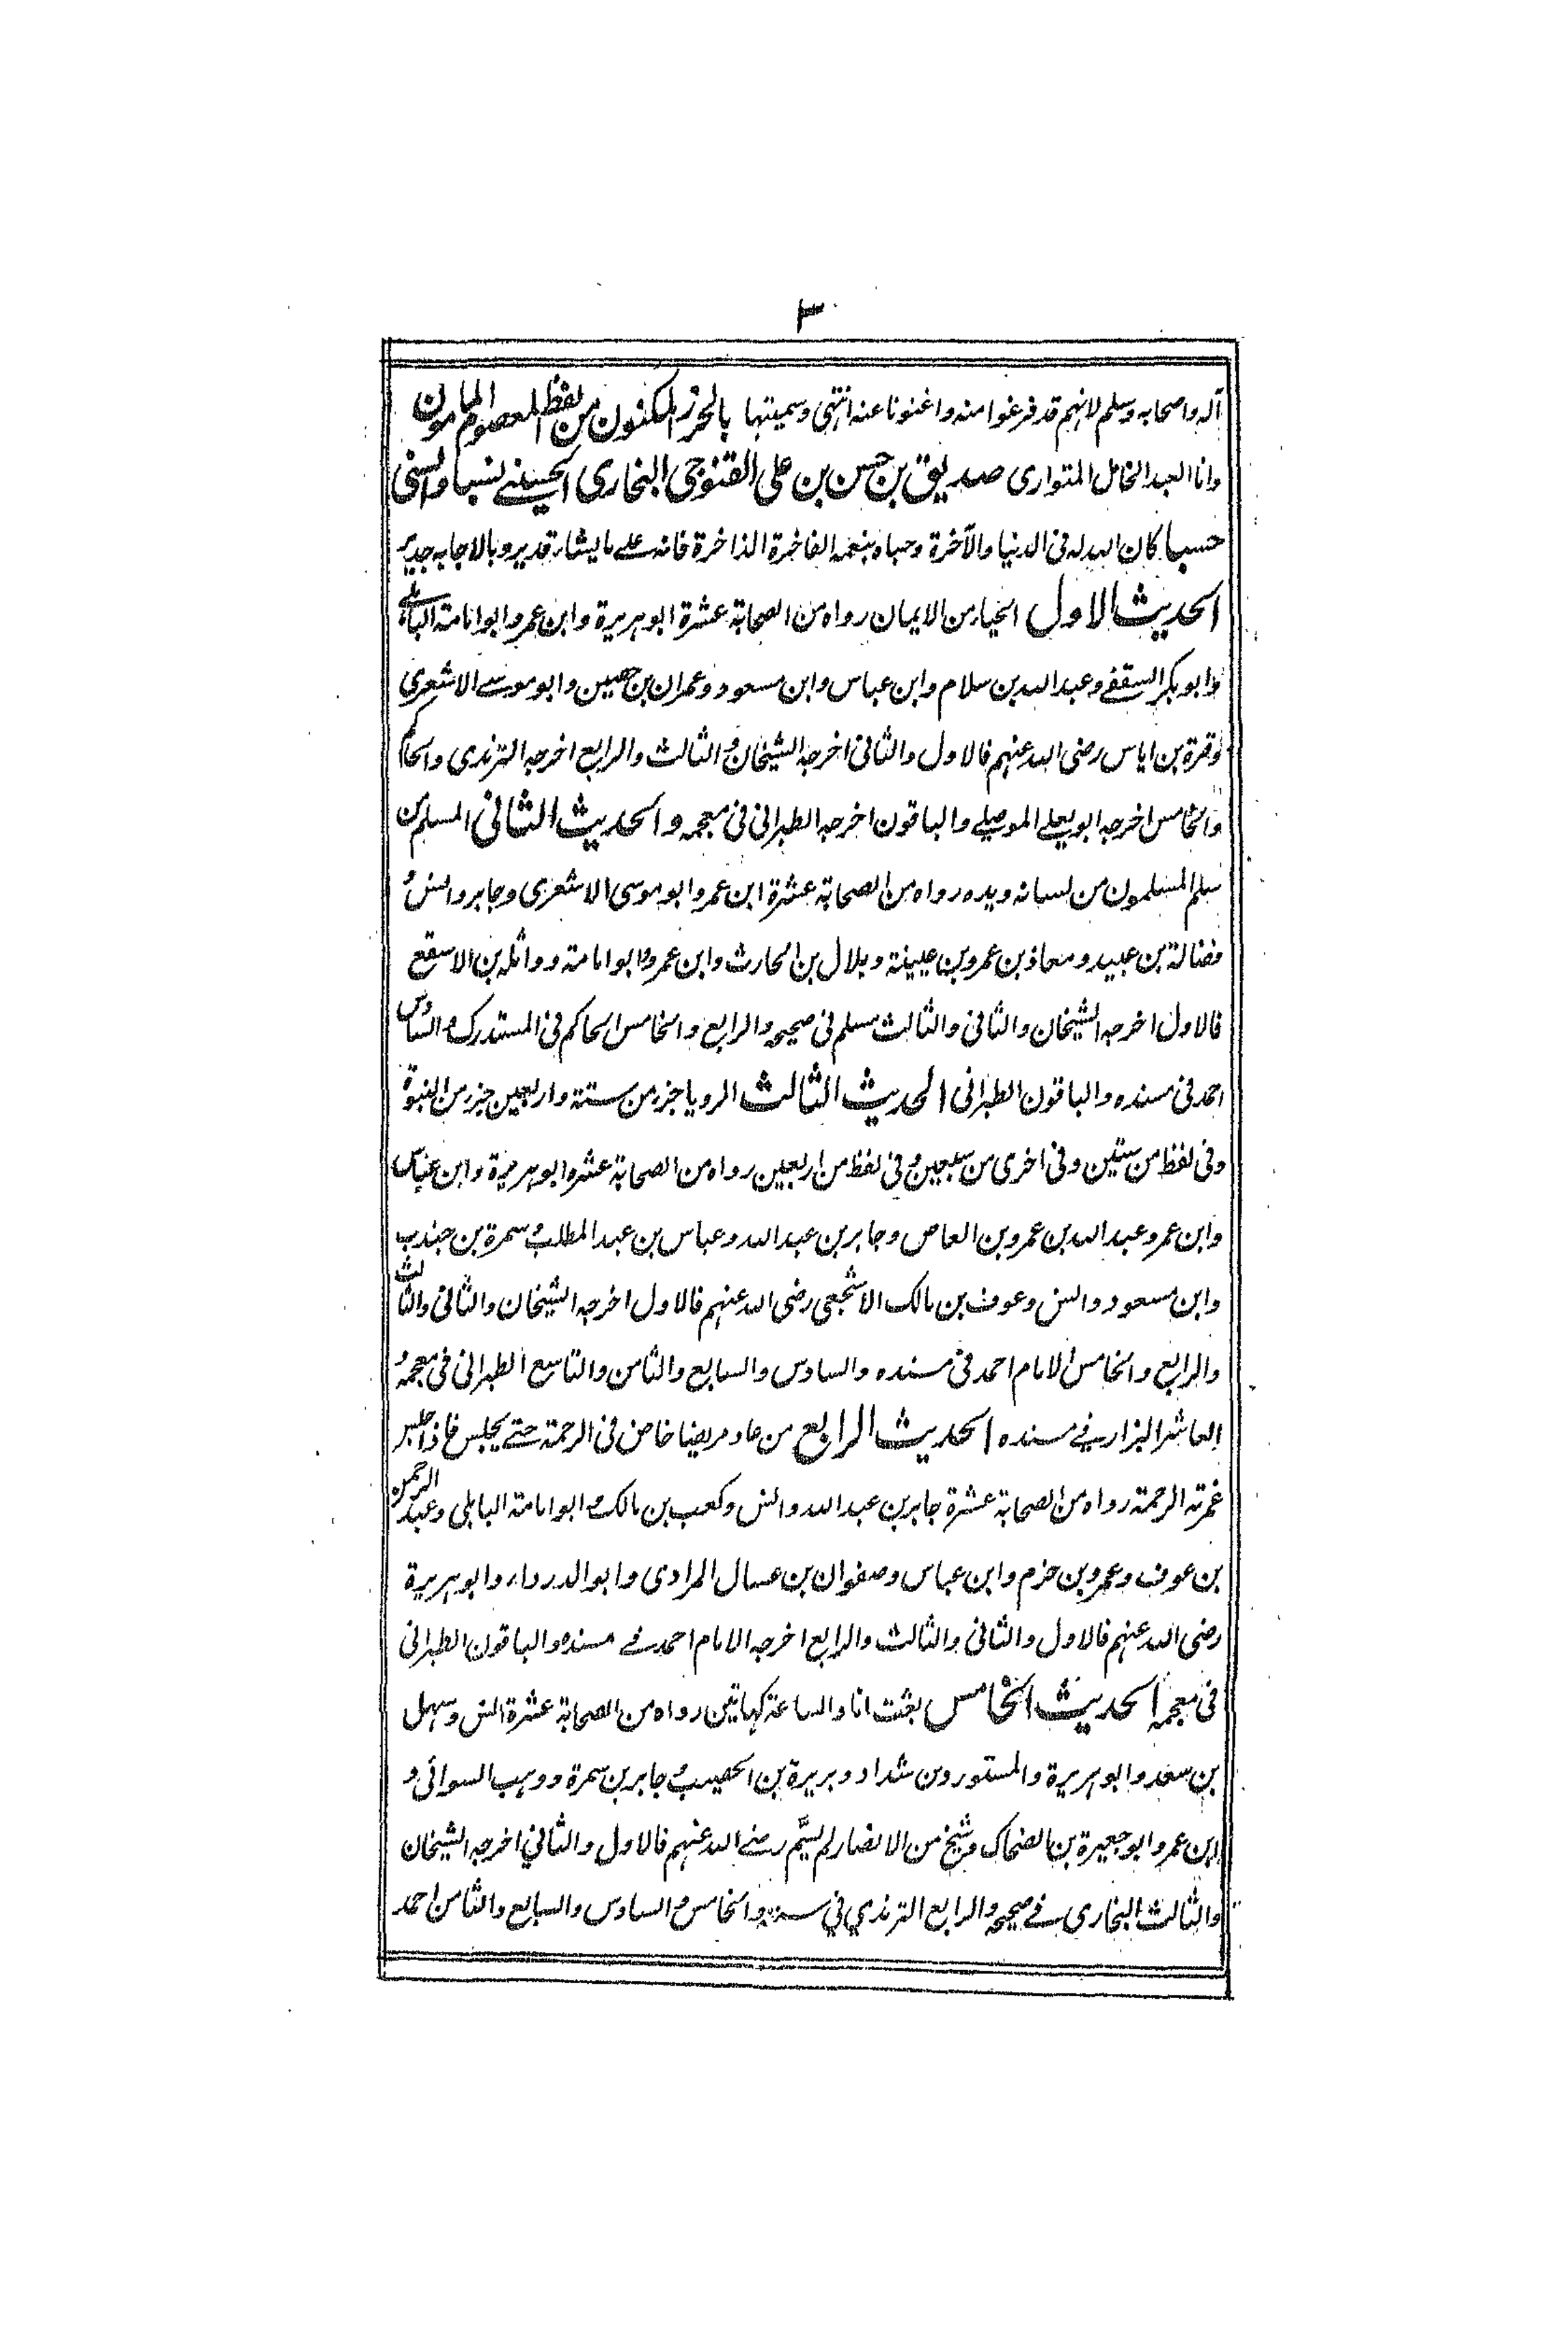 ٣
آله واصحابه وسلم لانهم قد فرغوا منه واغنونا عنه انتهى وسميتها بالحرز المكنون من لفظ المعصوم المامون
وانا العبد الخامل المتوارى صديق بن حسن بن على القنوجى البخارى الحسينى نسبا والسنى
حسبا كان الله له فى الدنيا والآخرة وحباه بنعمه الفاخرة الذاخرة فانه على ما يشاء قدير وبالاجابه جدير
الحديث الاول الحياء من الايمان رواه من الصحابة عشرة ابو هريرة وابن عمر وابو امامة الباهلى
وابو بكر السقفى وعبد الله بن سلام وابن عباس وابن مسعود وعمران بن حصين وابو موسى الاشعرى
وقرة بن اياس رضى الله عنهم فالاول والثانى اخرجه الشيخان والثالث والرابع اخرجه الترمذى والحاكم
والخامس اخرجه ابو يعلى الموصلى والباقون اخرجه الطبرانى فى معجمه والحديث الثانى المسلم من
سلم المسلمون من لسانه ويده رواه من الصحابة عشرة ابن عمر وابو موسى الاشعرى وجابر وانس و
فضالة بن عبيد ومعاذ بن عمرو بن عيينة وبلال بن الحارث وابن عمرو وابو امامة وواثله بن الاسقع
فالاول اخرجه الشيخان والثانى والثالث مسلم فى صحيحه والرابع والخامس الحاكم فى المستدرك والسادس
احمد فى مسنده والباقون الطبرانى الحديث الثالث الرويا جزء من ستة واربعين جزء من النبوة
وفى لفظ من ستين وفى اخرى من سبعين وفى لفظ من اربعين رواه من الصحابة عشره ابو هريرة وابن عباس
وابن عمر وعبد الله بن عمرو بن العاص وجابر بن عبد الله وعباس بن عبد المطلب وسمرة بن جندب
وابن مسعود وانس وعوف بن مالك الاشجعى رضى الله عنهم فالاول اخرجه الشيخان والثانى والثالث
والرابع والخامس الامام احمد فى مسنده والسادس والسابع والثامن والتاسع الطبرانى فى معجمه و
العاشر البزار فى مسنده الحديث الرابع من عاد مريضا خاض فى الرحمة حتى يجلس فاذا جلس
غمرته الرحمة رواه من الصحابة عشرة جابر بن عبد الله وانس وكعب بن مالك وابو امامة الباهلى وعبد الرحمن
بن عوف وعمرو بن حزم وابن عباس وصفوان بن عسال المرادى وابو الدرداء وابو هريرة
رضى الله عنهم فالاول والثانى والثالث والرابع اخرجه الامام احمد فى مسنده والباقون الطبرانى
فى معجمه الحديث الخامس بعثت انا والساعة كهاتين رواه من الصحابة عشرة انس وسهل
بن سعد وابو هريرة والمستورد بن شداد وبريرة بن الحصيب وجابر بن سمرة ووهب السوائى و
ابن عمر وابو جبيرة بن الضحاك وشيخ من الانصار لم يسم رضى الله عنهم فالاول والثاني اخرجه الشيخان
والثالث البخارى فى صحيحه والرابع الترمذي في سننه والخامس والسادس والسابع والثامن احمد